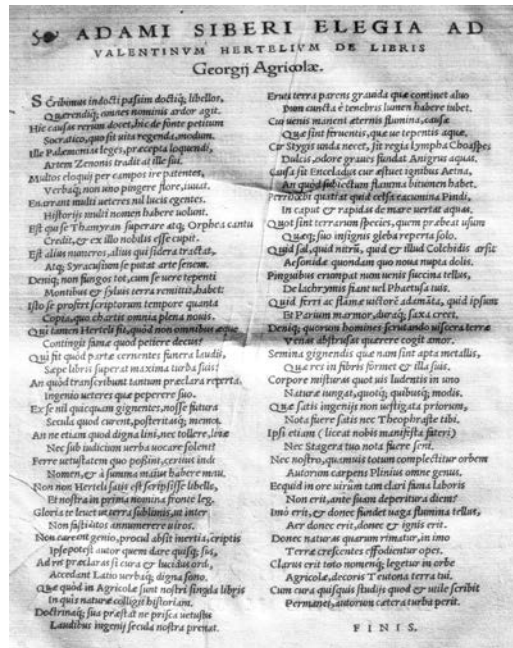 ADAMI SIBERI ELEGIA AD
VALENTINVM HERTELIVM DE LIBRIS
Georgij Agricolæ.
SCribimus indocti passim doctiq; libellos,
Quærendiq; omnes nominis ardor agit.
Hic causas rerum docet, hic de fonte petitum
Socratico, quo sit uita regenda, modum.
Ille Palæmonias leges, præcepta loquendi,
Artem Zenonis tradit at ille sui.
Multos eloquij per campos ire patentes,
Verbaq; non uno pingere flore, iuuat.
Enarrant multi ueteres nil lucis egentes.
Historijs multi nomen habere uolunt.
Est qui se Thamyran superare atq; Orphea cantu
Credit, & ex illo nobilis esse cupit.
Est alius numeros, alius qui sidera tractat,
Atq; Syracusium se putat arte senem.
Deniq; non fungos tot, cum se uere tepenti
Montibus & syluis terra remittit, habet:
Isto se profert scriptorum tempore quanta
Copia, quo chartis omnia plena nouis.
Qui tamen Herteli fit, quòd non omnibus æque
Contingit famæ quod petiere decus?
Qui fit quòd partæ cernentes funera laudis,
Sæpe libris superat maxima turba suis?
An quòd transcribunt tantum præclara reperta,
Ingenio ueteres quæ peperere suo.
Ex se nil quicquam gignentes, nosse futura
Secula quod curent, posteritasq; memor.
An ne etiam quod digna lini, nec tollere, leuia
Nec sub iudicium uerba uocare solent?
Ferre uetustatem quo possint, certius inde
Nomen, & à summa maius habere manu.
Non non Herteli satis est scripsisse libellos,
Et nostra in prima nomina fronte leg.
Gloria te leuet ut terra sublimis, ut inter
Non fastiditos annumerere uiros.
Non careant genio, procul absit inertia, scriptis
Ipse potest autor quem dare quisq; suis,
Ad res præclaras si cura & lucidus ord,
Accedant Latio uerbaq; digna sono.
Quæ quòd in Agricolæ sunt nostri singula libris
In quis naturæ colligit historiam.
Doctrinaq; sua præstat ne prisca uetustas
Laudibus ingenij secula nostra premat.
Eruit terra parens grauida quæ continet aluo
Dum cuncta è tenebris lumen habere iubet.
Cur uenis manent æternis flumina, causæ
Quæ sint feruentis, quæue tepentis aquæ.
Cur Stygis unda necet, sit regia lympha Choaspes
Dulcis, odore graues fundat Anigrus aquas.
Causa sit Enceladus cur æstuet ignibus Aetna,
An quòd subiectum flamma bitumen habet.
Perrhœbi quatiat quid celsa cacumina Pindi,
In caput & rapidas de mare uertat aquas.
Quot sint terrarum species, quem præbeat usum
Quæq; suo insignis gleba reperta solo.
Quid sal, quid nitrũ, quid & illud Colchidis arsit
Aesonidæ quondam quo noua nupta dolis.
Pinguibus erumpat num uenis succina tellus,
De lachrymis fiant uel Phaetusa tuis.
Quid ferri ac flamæ uictorẽ adamãta, quid ipsum
Et Parium marmor, duraq; saxa creet.
Deniq; quorum homines scrutando uiscera terræ
Venas abstrusas quærere cogit amor.
Semina gignendis quæ nam sint apta metallis,
Quæ res in fibris formet & illa suis.
Corpore misturas quot uis ludentis in uno
Naturæ iungat, quotq; quibusq; modis.
Quæ satis ingenijs non uestigata priorum,
Nota fuere satis nec Theophraste tibi.
Ipsi etiam (liceat nobis manifesta fateri)
Nec Stagera tuo nota fuere seni.
Nec nostro, quamuis totum complectitur orbem
Autorum carpens Plinius omne genus.
Ecquid in ore uirûm tam clari fama laboris
Non erit, ante suam deperitura diem?
Imò erit, & donec fundet uaga flumina tellus,
Aer donec erit, donec & ignis erit.
Donec naturas quarum rimatur, in imo
Terræ crescentes effodientur opes.
Clarus erit toto nomenq; legetur in orbe
Agricolæ, decoris Teutona terra tui.
Cum cura quisquis studijs quod & utile scribit
Permanet, autorum cætera turba perit.
FINIS.